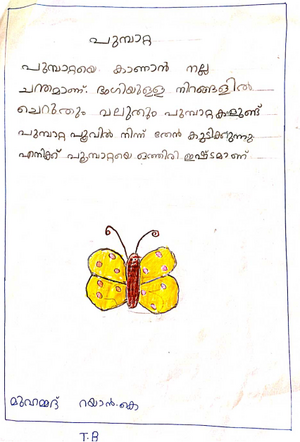 പൂമ്പാറ്റ
പൂമ്പാറ്റയെ കാണാൻ നല്ല
ചന്തമാണ്. ഭംഗിയുള്ള നിറങ്ങളിൽ
ചെറുതും വലുതും പൂമ്പാറ്റകളുണ്ട്
പൂമ്പാറ്റ പൂവിൽ നിന്ന് തേൻ കുടിക്കുന്നു.
എനിക്ക് പൂമ്പാറ്റയെ ഒത്തിരി ഇഷ്ടമാണ്
മുഹമ്മദ് റയാൻ.കെ
T.B